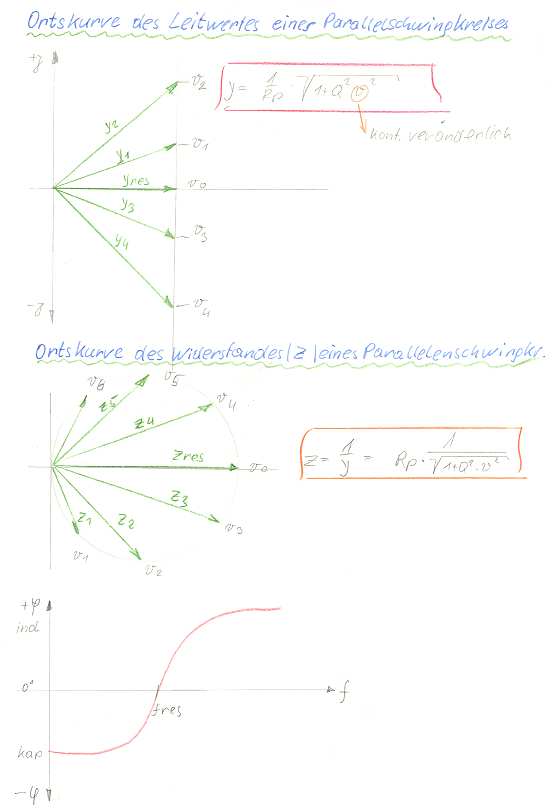 Ortskurve des Leitwertes einer Parallelschwingkreises
+j
v2
y = 1/Rp · √1+Q² v²
y2
kont. veränderlich
v1
y1
yres
v0
y3
v3
y4
-j
v4
Ortskurve des Widerstandes |Z| eines Parallelenschwingkr.
v6
v5
z5
v4
z4
zres
v0
z = 1/y = Rp · 1/√1+Q²·v²
z1
z2
z3
v3
v1
v2
+φ
ind
0°
f
fres
kap
-φ